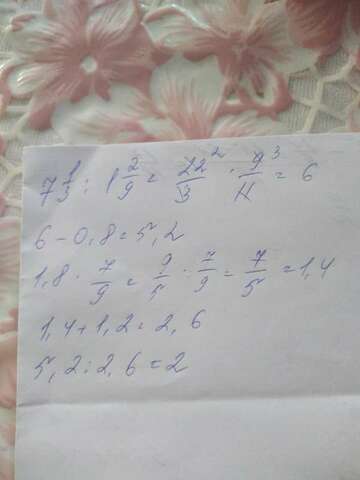 7 1/3 : 1 2/9 = 22²/3 · 9³/11 = 6
6 - 0,8 = 5,2
1,8 · 7/9 = 9/5 · 7/9 = 7/5 = 1,4
1,4 + 1,2 = 2,6
5,2 : 2,6 = 2